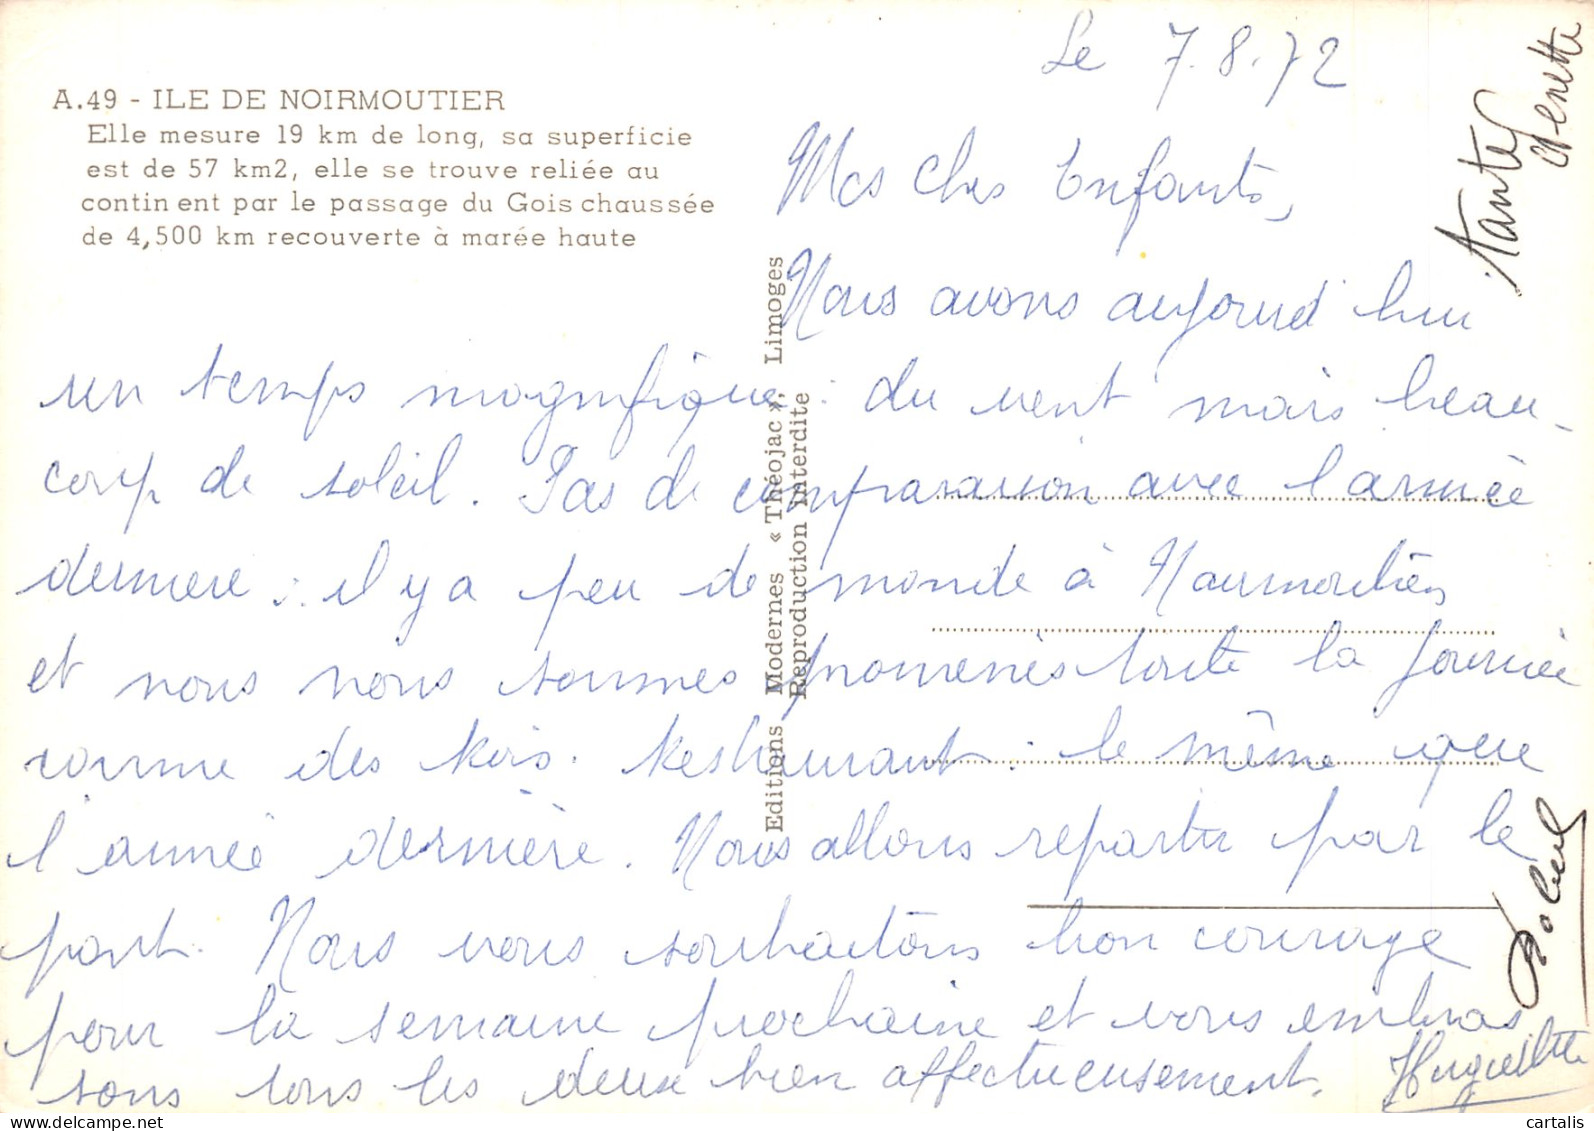 A.49 - ILE DE NOIRMOUTIER
Elle mesure 19 km de long, sa superficie
est de 57 km2, elle se trouve reliée au
contin ent par le passage du Gois chaussée
de 4,500 km recouverte à marée haute
Editions Modernes « Théojac », Limoges
Reproduction interdite
Le 7.8.72
Mes Chers Enfants,
Nous avons aujourd'hui
un temps magnifique : du vent mais beau-
coup de soleil. Pas de comparaison avec l'année
dernière : il y a peu de monde à Noirmoutier
et nous nous sommes promenés toute la journée
comme des Rois. Restaurant : le même que
l'année dernière. Nous allons repartir par le
pont. Nous vous souhaitons bon courage
pour la semaine prochaine et vous embras
sons tous les deux bien affectueusement.
Huguette
Tante
Robert
cartalis
cartalis.com